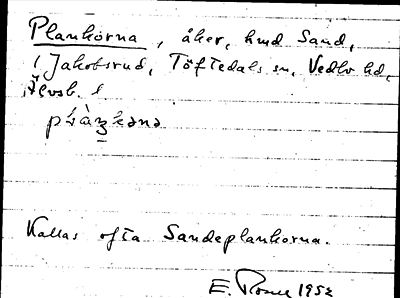 Plankorna, åker, hmd Sand,
i Jakobsrud, Töftedals sn, Vedbo hd,
Älvsb. l
Kallas ofta Sandeplankorna.
E. 1952